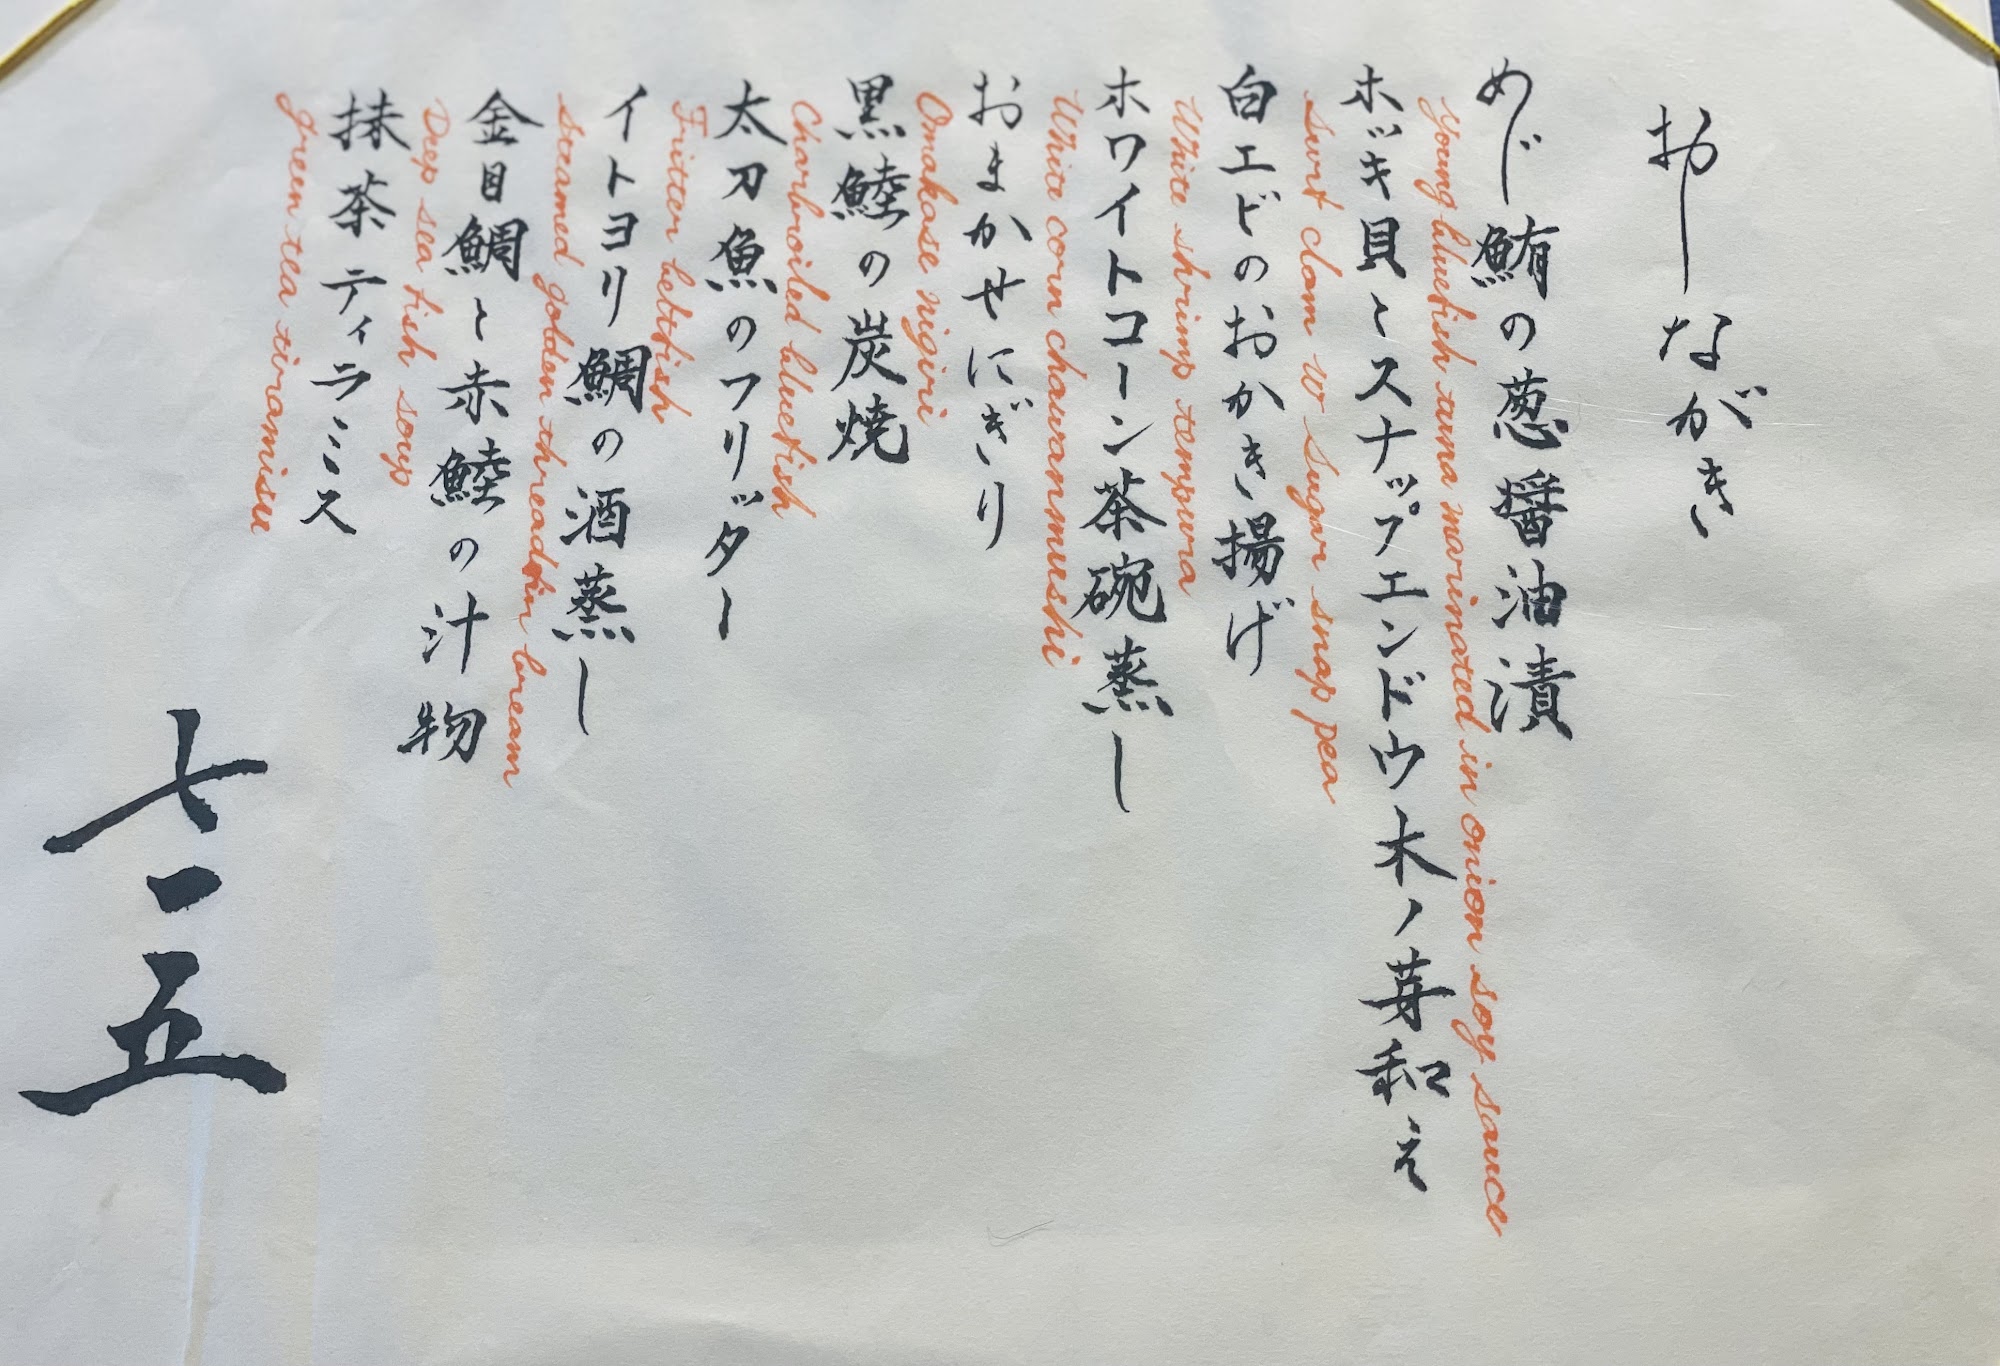 おしながき
めじ鮪の葱醤油漬
Young bluefish tuna marinated in onion soy sauce
ホッキ貝とスナップエンドウ木ノ芽和え
Surf clam w sugar snap pea
白エビのおかき揚げ
White shrimp tempura
ホワイトコーン茶碗蒸し
White corn chawanmushi
おまかせにぎり
Omakase nigiri
黒鯥の炭焼
Charbroiled bluefish
太刀魚のフリッター
Fritter beltfish
イトヨリ鯛の酒蒸し
Steamed golden threadfin bream
金目鯛と赤鯥の汁物
Deep sea fish soup
抹茶ティラミス
green tea tiramisu
七-五